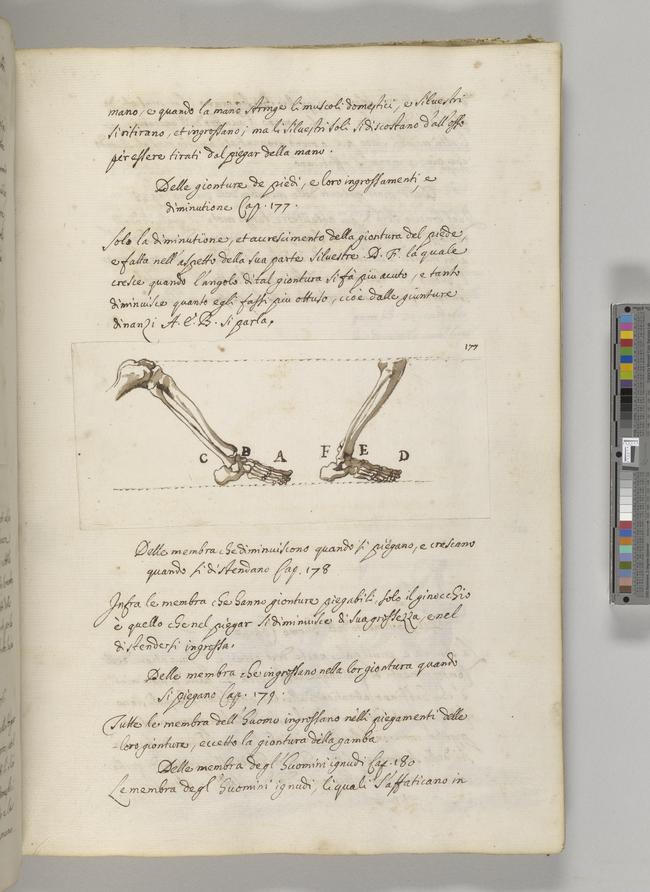 mano, e quando la mano stringe li muscoli domestici, e silvestri
si ritirano, et ingrossano; ma li silvestri soli si discostano d'all'osso
per essere tirati dal piegar della mano.
Delle gionture de piedi, e loro ingrossamenti, e
diminutione Cap. 177.
Solo la diminutione, et accrescimento della giontura del piede,
e fatta nell'aspetto della sua parte silvestre D. F. la quale
cresce quando l'angolo di tal giontura si fà piu acuto, e tanto
diminuisce quanto egli fassi piu ottuso, cioè dalle giunture
dinanzi A. e B. si parla.
177
C B A F E D
Delle membra che diminuiscono quando si piegano, e crescano
quando si distendano Cap. 178
Infra le membra che hanno gionture piegabili, solo il ginocchio
è quello che nel piegar si diminuisce di sua grossezza, e nel
distendersi ingrossa.
Delle membra che ingrossano nella lor giontura quando
si piegano Cap. 179.
Tutte le membra dell'huomo ingrossano nelli piegamenti delle
loro gionture, eccetto la giontura della gamba
Delle membra degl'huomini ignudi Cap. 180
Le membra degl'huomini ignudi, li quali s'affaticano in